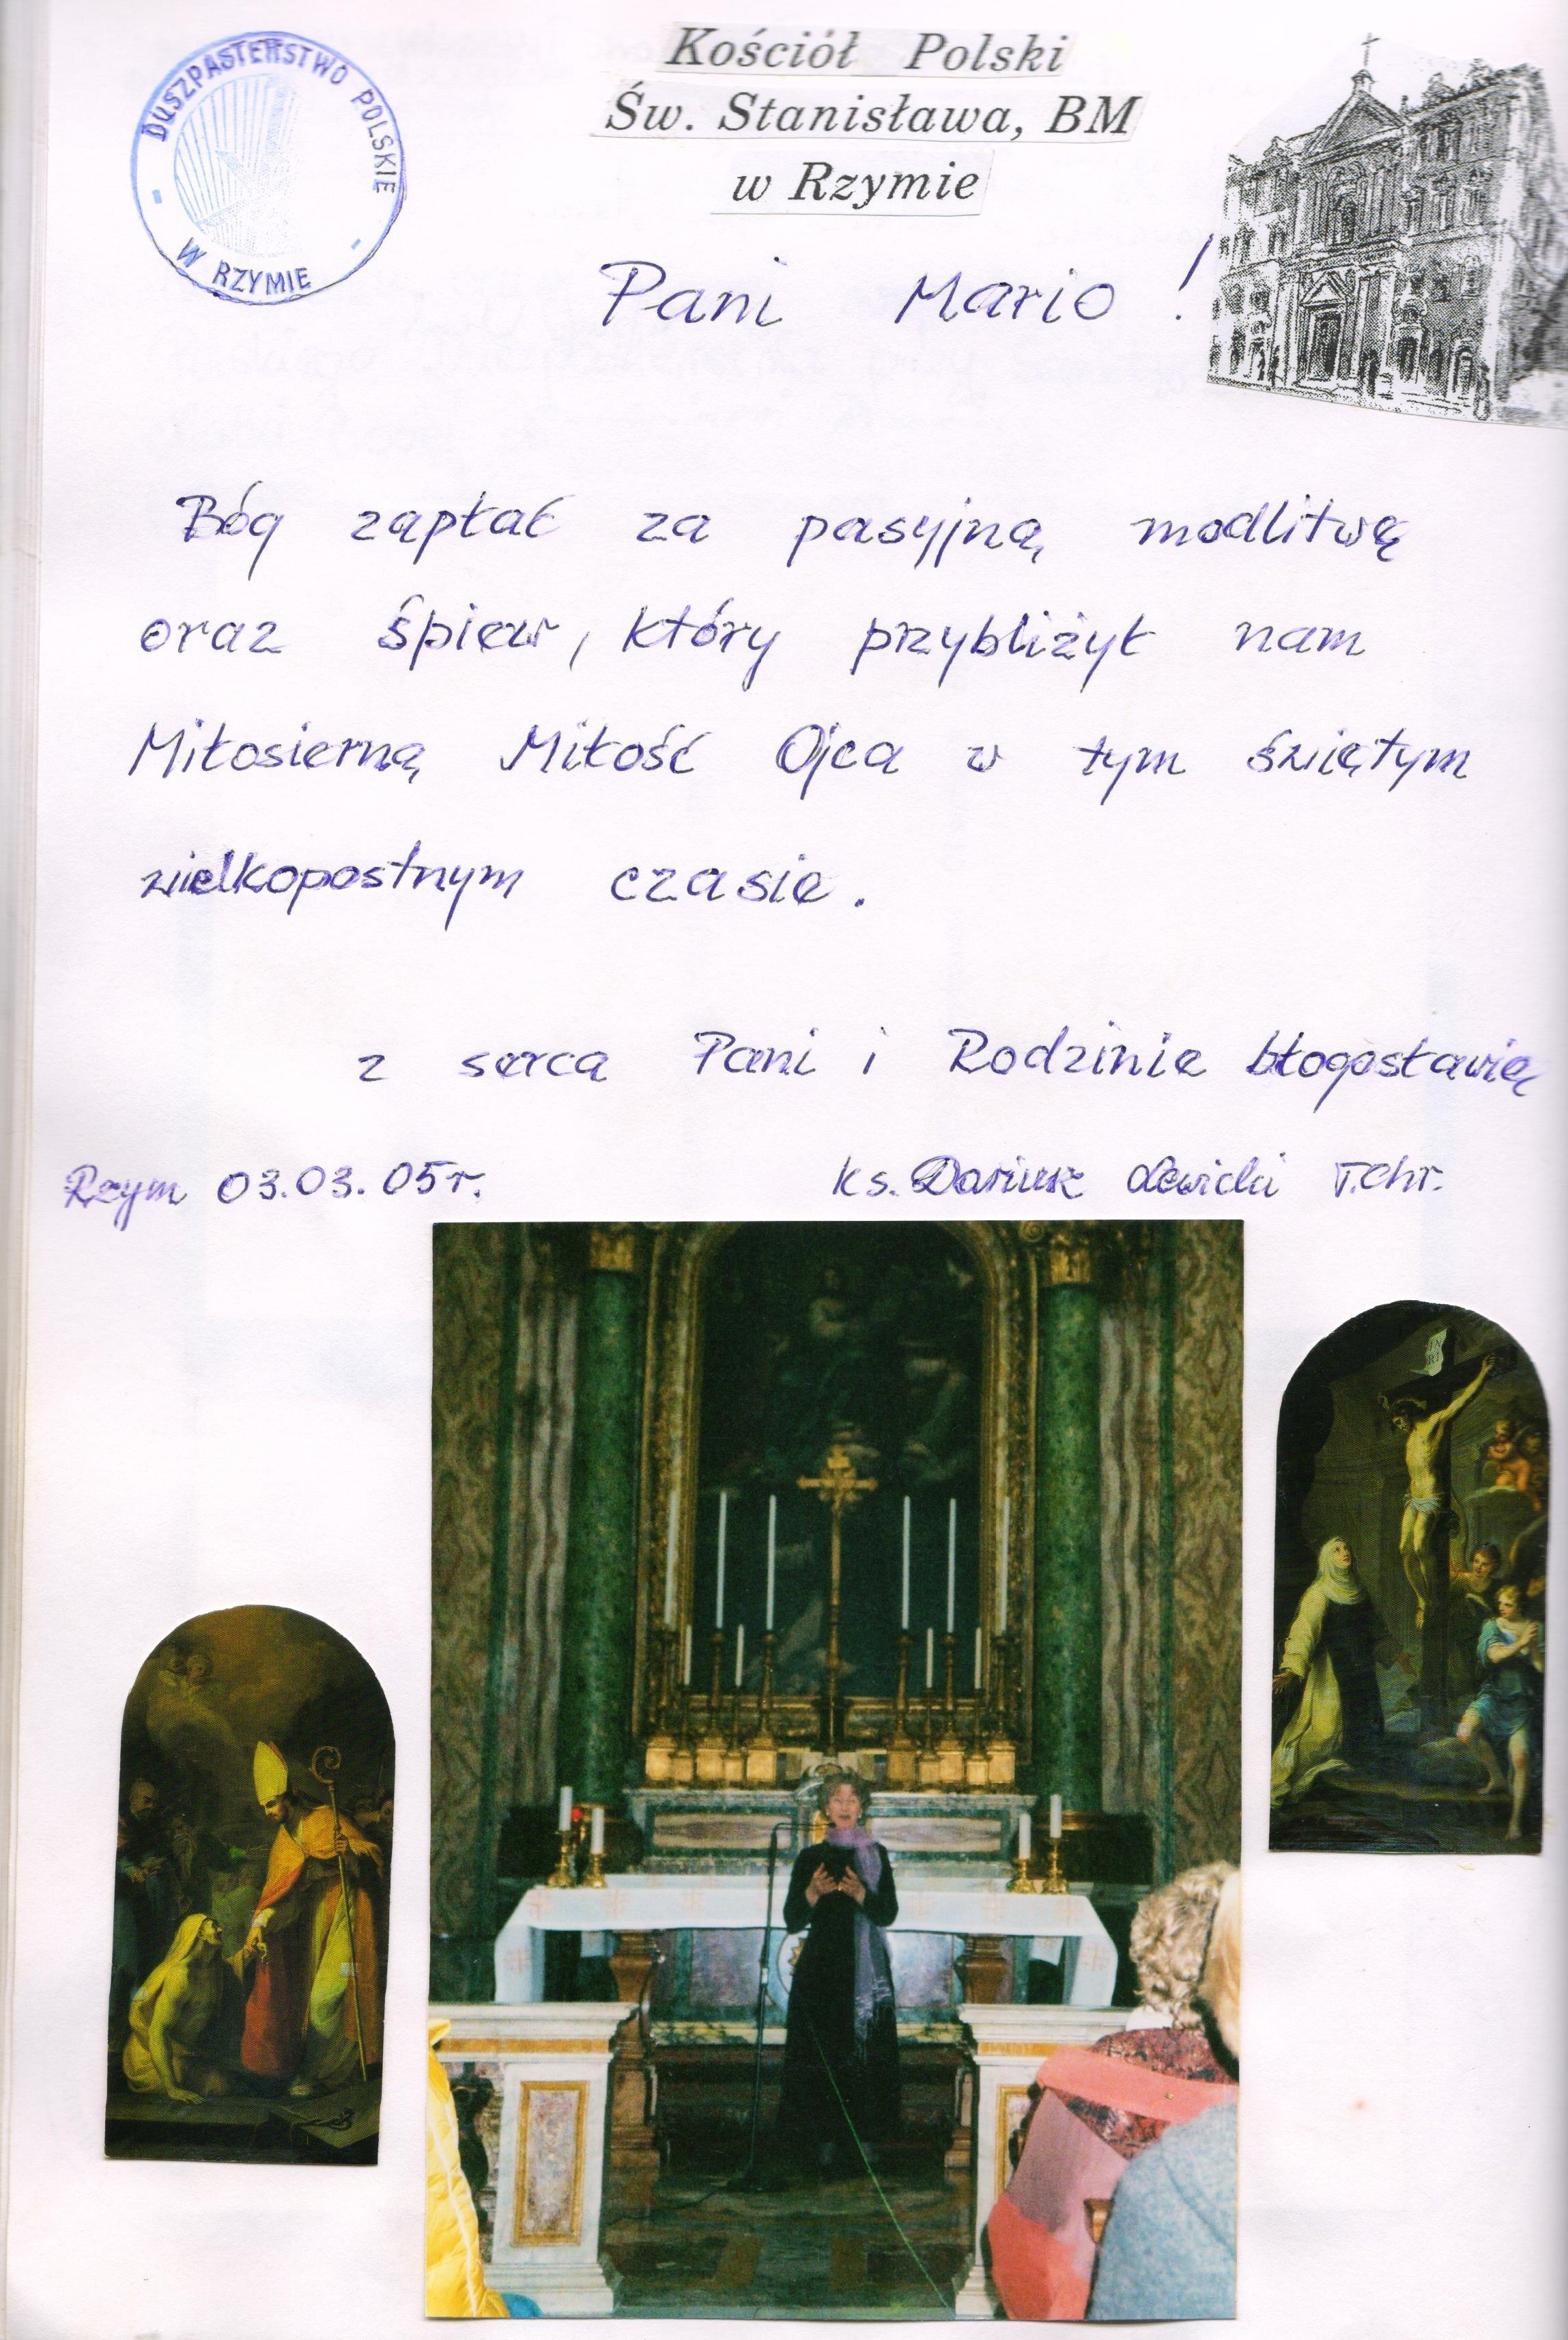 DUSZPASTERSTWO POLSKIE
W RZYMIE
Kościół Polski
Św. Stanisława, BM
w Rzymie
Pani Mario!
Bóg zapłać za pasyjną modlitwę
oraz śpiew, który przybliżył nam
Miłosierną Miłość Ojca w tym świętym
wielkopostnym czasie.
z serca Pani i Rodzinie błogosławię
Rzym 03.03.05r.
ks. Dariusz Lewicki T.Chr.
IN
RI